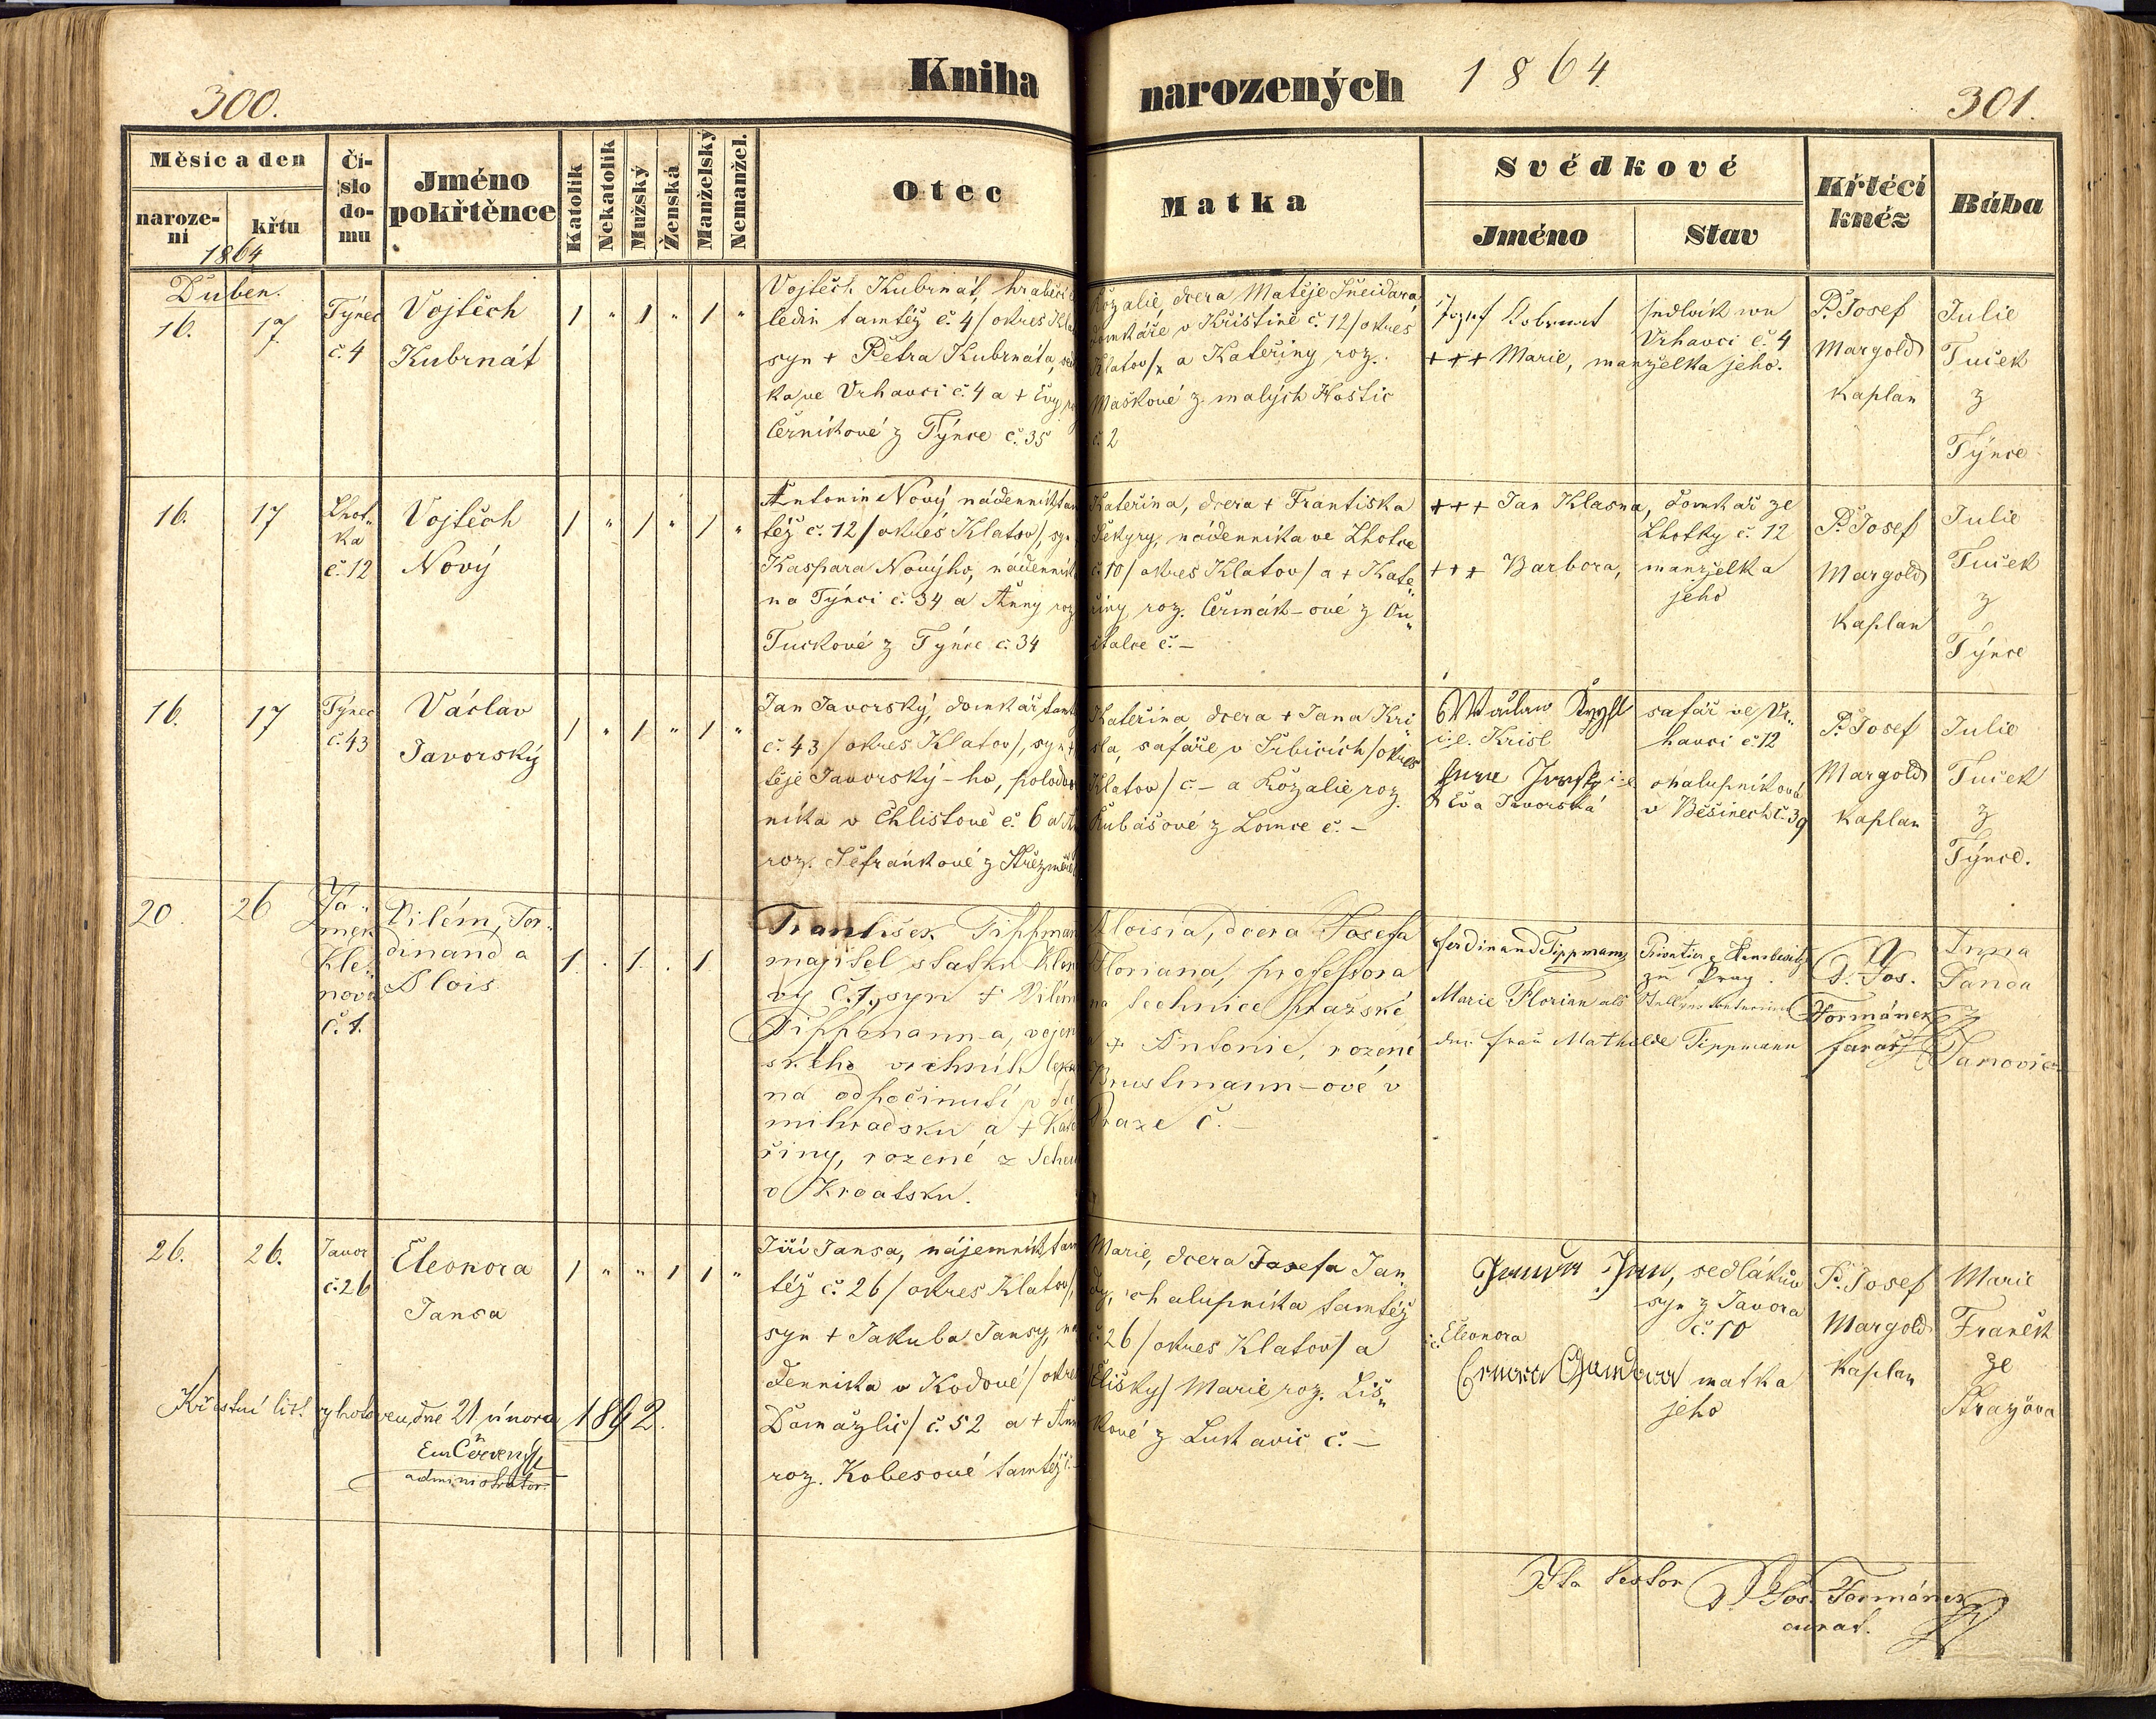 300.
Kniha
narozených
1864.
301.
Měsíc a den
narození
křtu
1864
Číslo domu
Jméno pokřtěnce
Katolík
Nekatolík
Mužský
Ženská
Manželský
Nemanžel.
Otec
Matka
Svědkové
Jméno
Stav
Křtící kněz
Bába
Duben.
16.
17.
Týnec
č. 4
Vojtěch
Kubrnát
1 " 1 " 1 "
Vojtěch Kubrnát,
tamtéž č. 4 / okres
syn + Petra Kubrnáta,
ve Vrhavci č. 4 a + Evy
Černíkové z Týnce č. 35
Rozalie, dcera Matěje Šneidara
domkáře v Kristině č. 12 / okres
Klatov / a Kateřiny roz.
Maškové z malých Hostic
č. 2
Josef Kobrnat
sedlák
Vrhavci č. 4
+++ Marie, manželka jeho.
P. Josef
Margold
kaplan
Julie
Tuček
z
Týnce
16.
17
Lhot„
ka
č. 12
Vojtěch
Nový
1 " 1 " 1 "
Antonin Nový, nádenník
též č. 12 / okres Klatov /,
Kaspara Novýho,
na Týnci č. 34 a Anny roz
Tuckové z Týnce č. 34
Kateřina, dcera + Frantiska
Sekyry, nádenníka ve Lhotce
č. 10 / okres Klatov / a + Kate„
řiny roz. Čermák-ové z
č. –
+++ Jan Klasna, domkář ze
Lhotky č. 12
+++ Barbora, manželka
jeho
P. Josef
Margold
kaplan
Julie
Tuček
z
Týnce
16.
17
Týnec
č. 43
Václav
Javorský
1 " 1 " 1 "
Jan Javorský, domkář
č. 43 / okres Klatov /,
těje Javorský-ho,
níka v Chlistově č. 6
roz. Šefránkové z
Kateřina dcera + Jana Kri„
sla, šafáře v Srbicích / okres
Klatov / č – a Rozalie roz.
Kubašové z Lomce č. –
i: e. Krisl
šafář ve Vr„
havci č. 12
Eva Javorská
chalupníková
v Běšinech č. 39
P. Josef
Margold
kaplan
Julie
Tuček
z
Týnce.
20.
26
Zá„
mek
Kle„
nová
č. 1.
Vilém, Fer„
dinand a
Alois
1 . 1 . 1
František Tippmann
majitel statku
č. 1, syn + Viléma
Tippmann-a,
ského
na odpočinutí v
a +
řiny, rozené z
v Kroatsku.
Aloisia, dcera Josefa
Floriana, professora
na technice pražské,
a + Antonie, rozené
Brustmann-ové v
Praze č. –
Ferdinand Tippmann
zu Prag
Marie Florian als
der Frau Mathilde Tippmann
P. Jos.
Formánek
farář
Anna
Panda
z
Janovic
26.
26.
Javor
č. 26
Eleonora
Jansa
1 " " 1 1 "
Jiří Jansa, nájemník
též č. 26 / okres Klatov /,
syn + Jakuba Jansy,
denníka v Kodově / okres
Domažlic / č. 52 a +
roz. Kobesové tamtéž
Marie, dcera Josefa Jan„
dy, chalupníka tamtéž
č. 26 / okres Klatov / a
Elišky / Marie roz. Liš„
kové z č. –
Jan, sedlákův
syn z Javora
č. 10
Eleonora
matka
jeho
P. Josef
Margold
kaplan
Marie
Franěk
ze
Křestní list vyhotoven, dne 21 února 1892.
Em Červený
administrator.
Ita testor P. Jos. Formánek
curat.